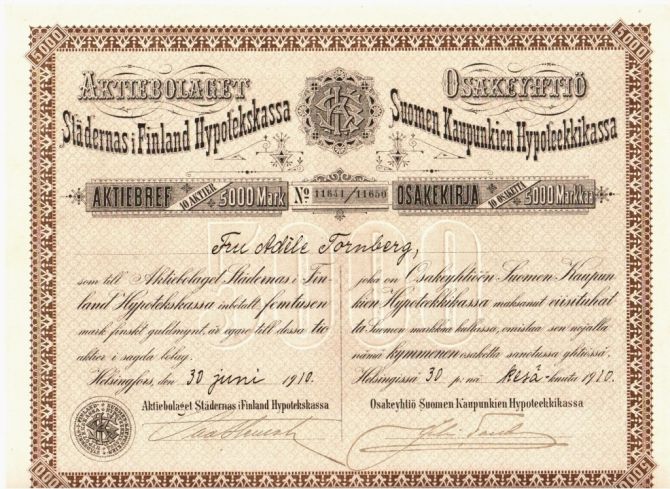 5000
5000
AKTIEBOLAGET
Städernas i Finland Hypotekskassa
OSAKEYHTIÖ
Suomen Kaupunkien Hypoteekkikassa
AKTIEBREF 10 AKTIER 5000 Mark
No 11641/11650
OSAKEKIRJA 10 OSAKETTA 5000 Markkaa
5000
Fru Adile Tornberg,
som till Aktiebolaget Städernas i Fin-
land Hypotekskassa inbetalt femtusen
mark finskt guldmynt, är egare till dessa tio
aktier i sagda bolag.
Helsingfors, den 30 juni 1910.
Aktiebolaget Städernas i Finland Hypotekskassa
joka on Osakeyhtiöön Suomen Kaupun-
kien Hypoteekkikassa maksanut viisituhat-
ta Suomen markkaa kullassa, omistaa sen nojalla
nämä kymmenen osaketta sanotussa yhtiössä.
Helsingissä 30 p:nä kesä-kuuta 1910.
Osakeyhtiö Suomen Kaupunkien Hypoteekkikassa
5000
5000